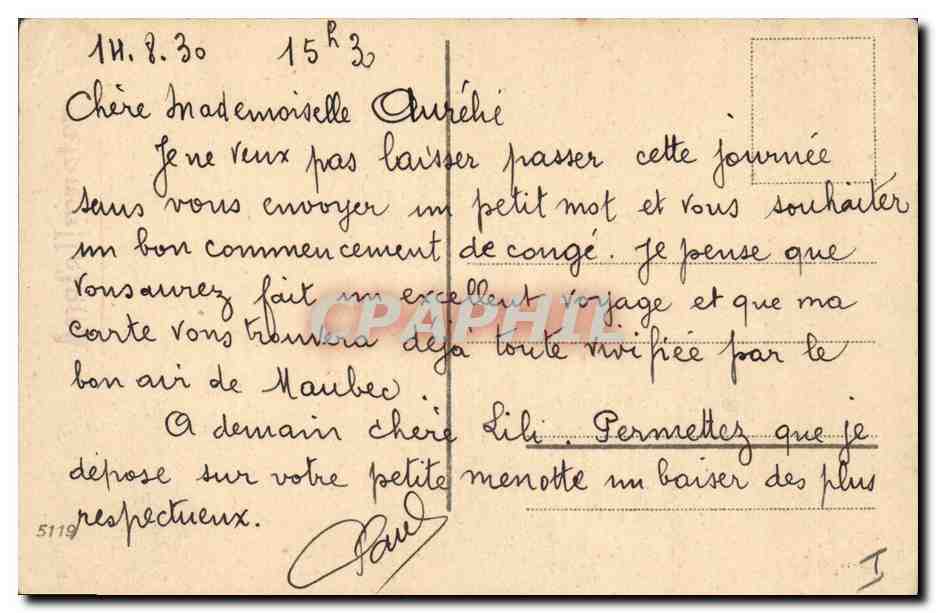 14.8.30 15h30
Chère Mademoiselle Aurélie
Je ne veux pas laisser passer cette journée
sans vous envoyer un petit mot et vous souhaiter
un bon commencement de congé. Je pense que
vous aurez fait un excellent voyage et que ma
carte vous trouvera déjà toute vivifiée par le
bon air de Maubec.
A demain chère Lili. Permettez que je
dépose sur votre petite menotte un baiser des plus
respectueux.
Paul
5119
I
CPAPHIL